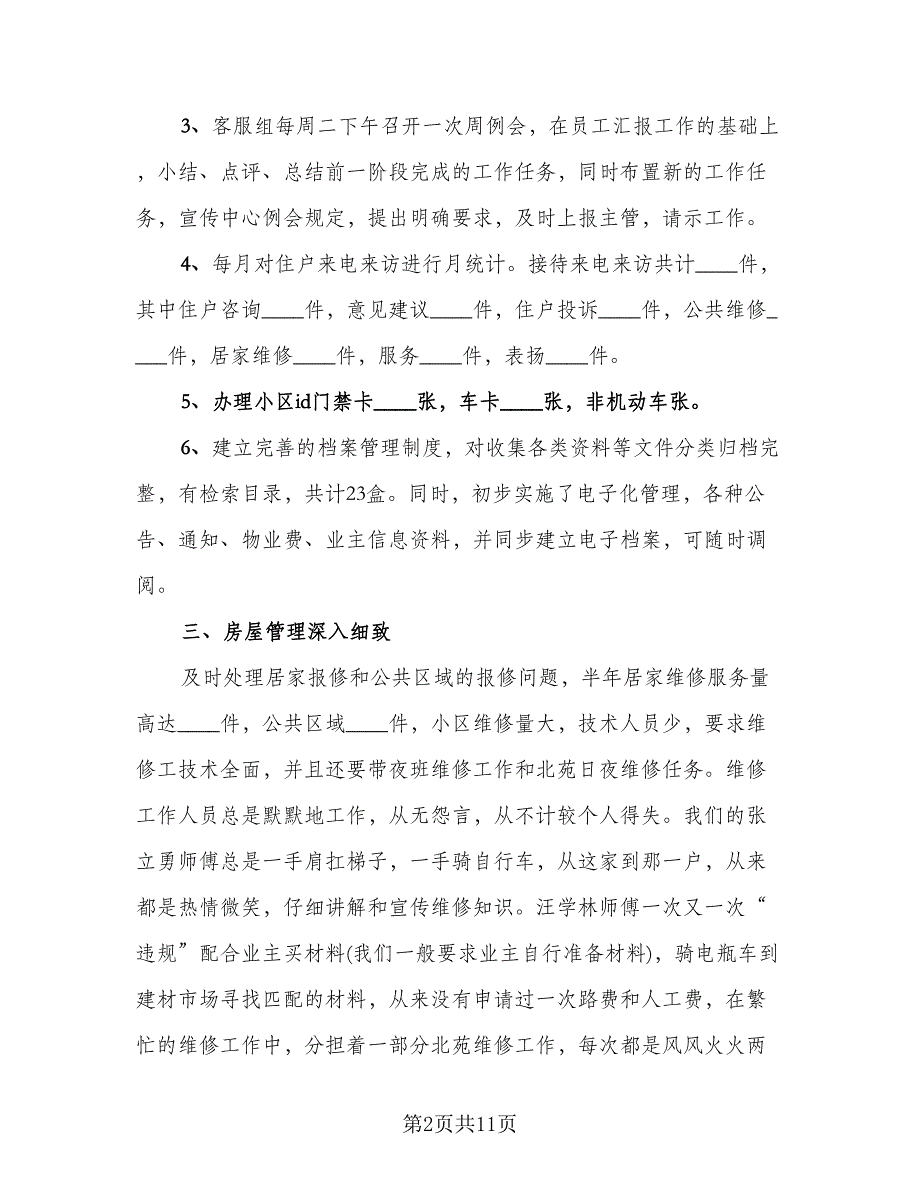 3、客服组每周二下午召开一次周例会，在员工汇报工作的基础上
，小结、点评、总结前一阶段完成的工作任务，同时布置新的工作任
务，宣传中心例会规定，提出明确要求，及时上报主管，请示工作。
4、每月对住户来电来访进行月统计。接待来电来访共计____件，
其中住户咨询____件，意见建议____件，住户投诉____件，公共维修_
___件，居家维修____件，服务____件，表扬____件。
5、办理小区id门禁卡____张，车卡____张，非机动车张。
6、建立完善的档案管理制度，对收集各类资料等文件分类归档完
整，有检索目录，共计23盒。同时，初步实施了电子化管理，各种公
告、通知、物业费、业主信息资料，并同步建立电子档案，可随时调
阅。
三、房屋管理深入细致
及时处理居家报修和公共区域的报修问题，半年居家维修服务量
高达____件，公共区域____件，小区维修量大，技术人员少，要求维
修工技术全面，并且还要带夜班维修工作和北苑日夜维修任务。维修
工作人员总是默默地工作，从无怨言，从不计较个人得失。我们的张
立勇师傅总是一手肩扛梯子，一手骑自行车，从这家到那一户，从来
都是热情微笑，仔细讲解和宣传维修知识。汪学林师傅一次又一次“
违规”配合业主买材料(我们一般要求业主自行准备材料)，骑电瓶车到
建材市场寻找匹配的材料，从来没有申请过一次路费和人工费，在繁
忙的维修工作中，分担着一部分北苑维修工作，每次都是风风火火两
第2页共11页